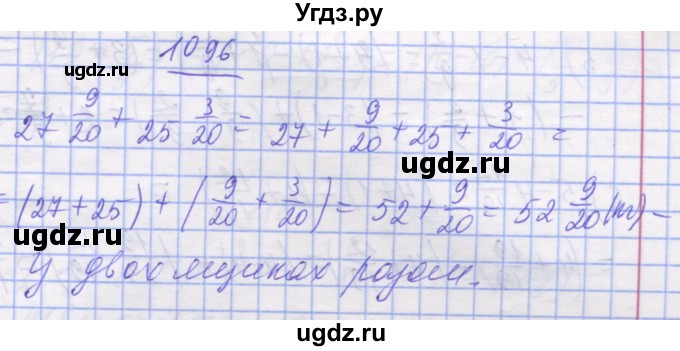 Угдз.ру
1096
ugdz.ru ugdz.ru
27 9/20 + 25 3/20 = 27 + 9/20 + 25 + 3/20 =
ugdz.ru
= (27 + 25) + (9/20 + 3/20) = 52 + 9/20 = 52 9/20 (кг) –
ugdz.ru ugdz.ru
У двох ящиках разом.
ugdz.ru ugdz.ru